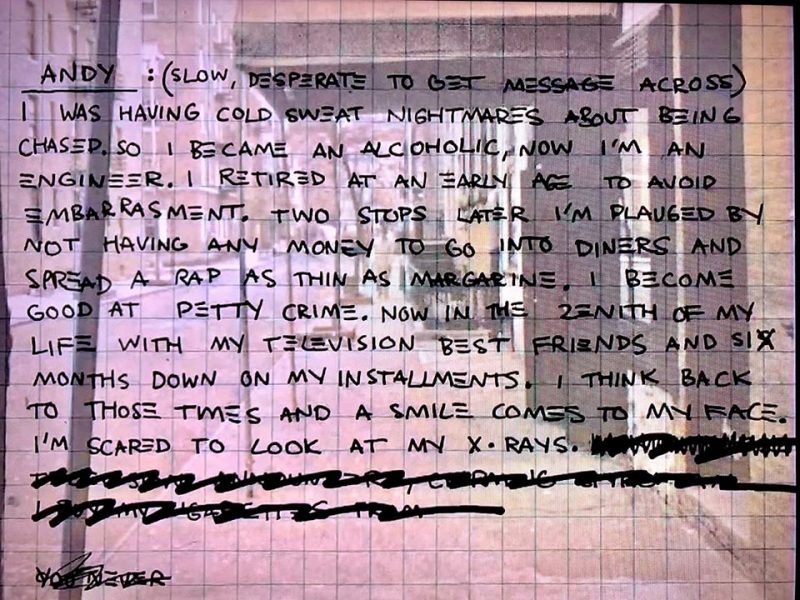 ANDY : (SLOW, DESPERATE TO GET MESSAGE ACROSS)
I WAS HAVING COLD SWEAT NIGHTMARES ABOUT BEING
CHASED. SO I BECAME AN ALCOHOLIC, NOW I'M AN
ENGINEER. I RETIRED AT AN EARLY AGE TO AVOID
EMBARRASMENT. TWO STOPS LATER I'M PLAUGED BY
NOT HAVING ANY MONEY TO GO INTO DINERS AND
SPREAD A RAP AS THIN AS MARGARINE. I BECOME
GOOD AT PETTY CRIME. NOW IN THE ZENITH OF MY
LIFE WITH MY TELEVISION BEST FRIENDS AND SIX
MONTHS DOWN ON MY INSTALLMENTS. I THINK BACK
TO THOSE TIMES AND A SMILE COMES TO MY FACE.
I'M SCARED TO LOOK AT MY X-RAYS.
NEVER